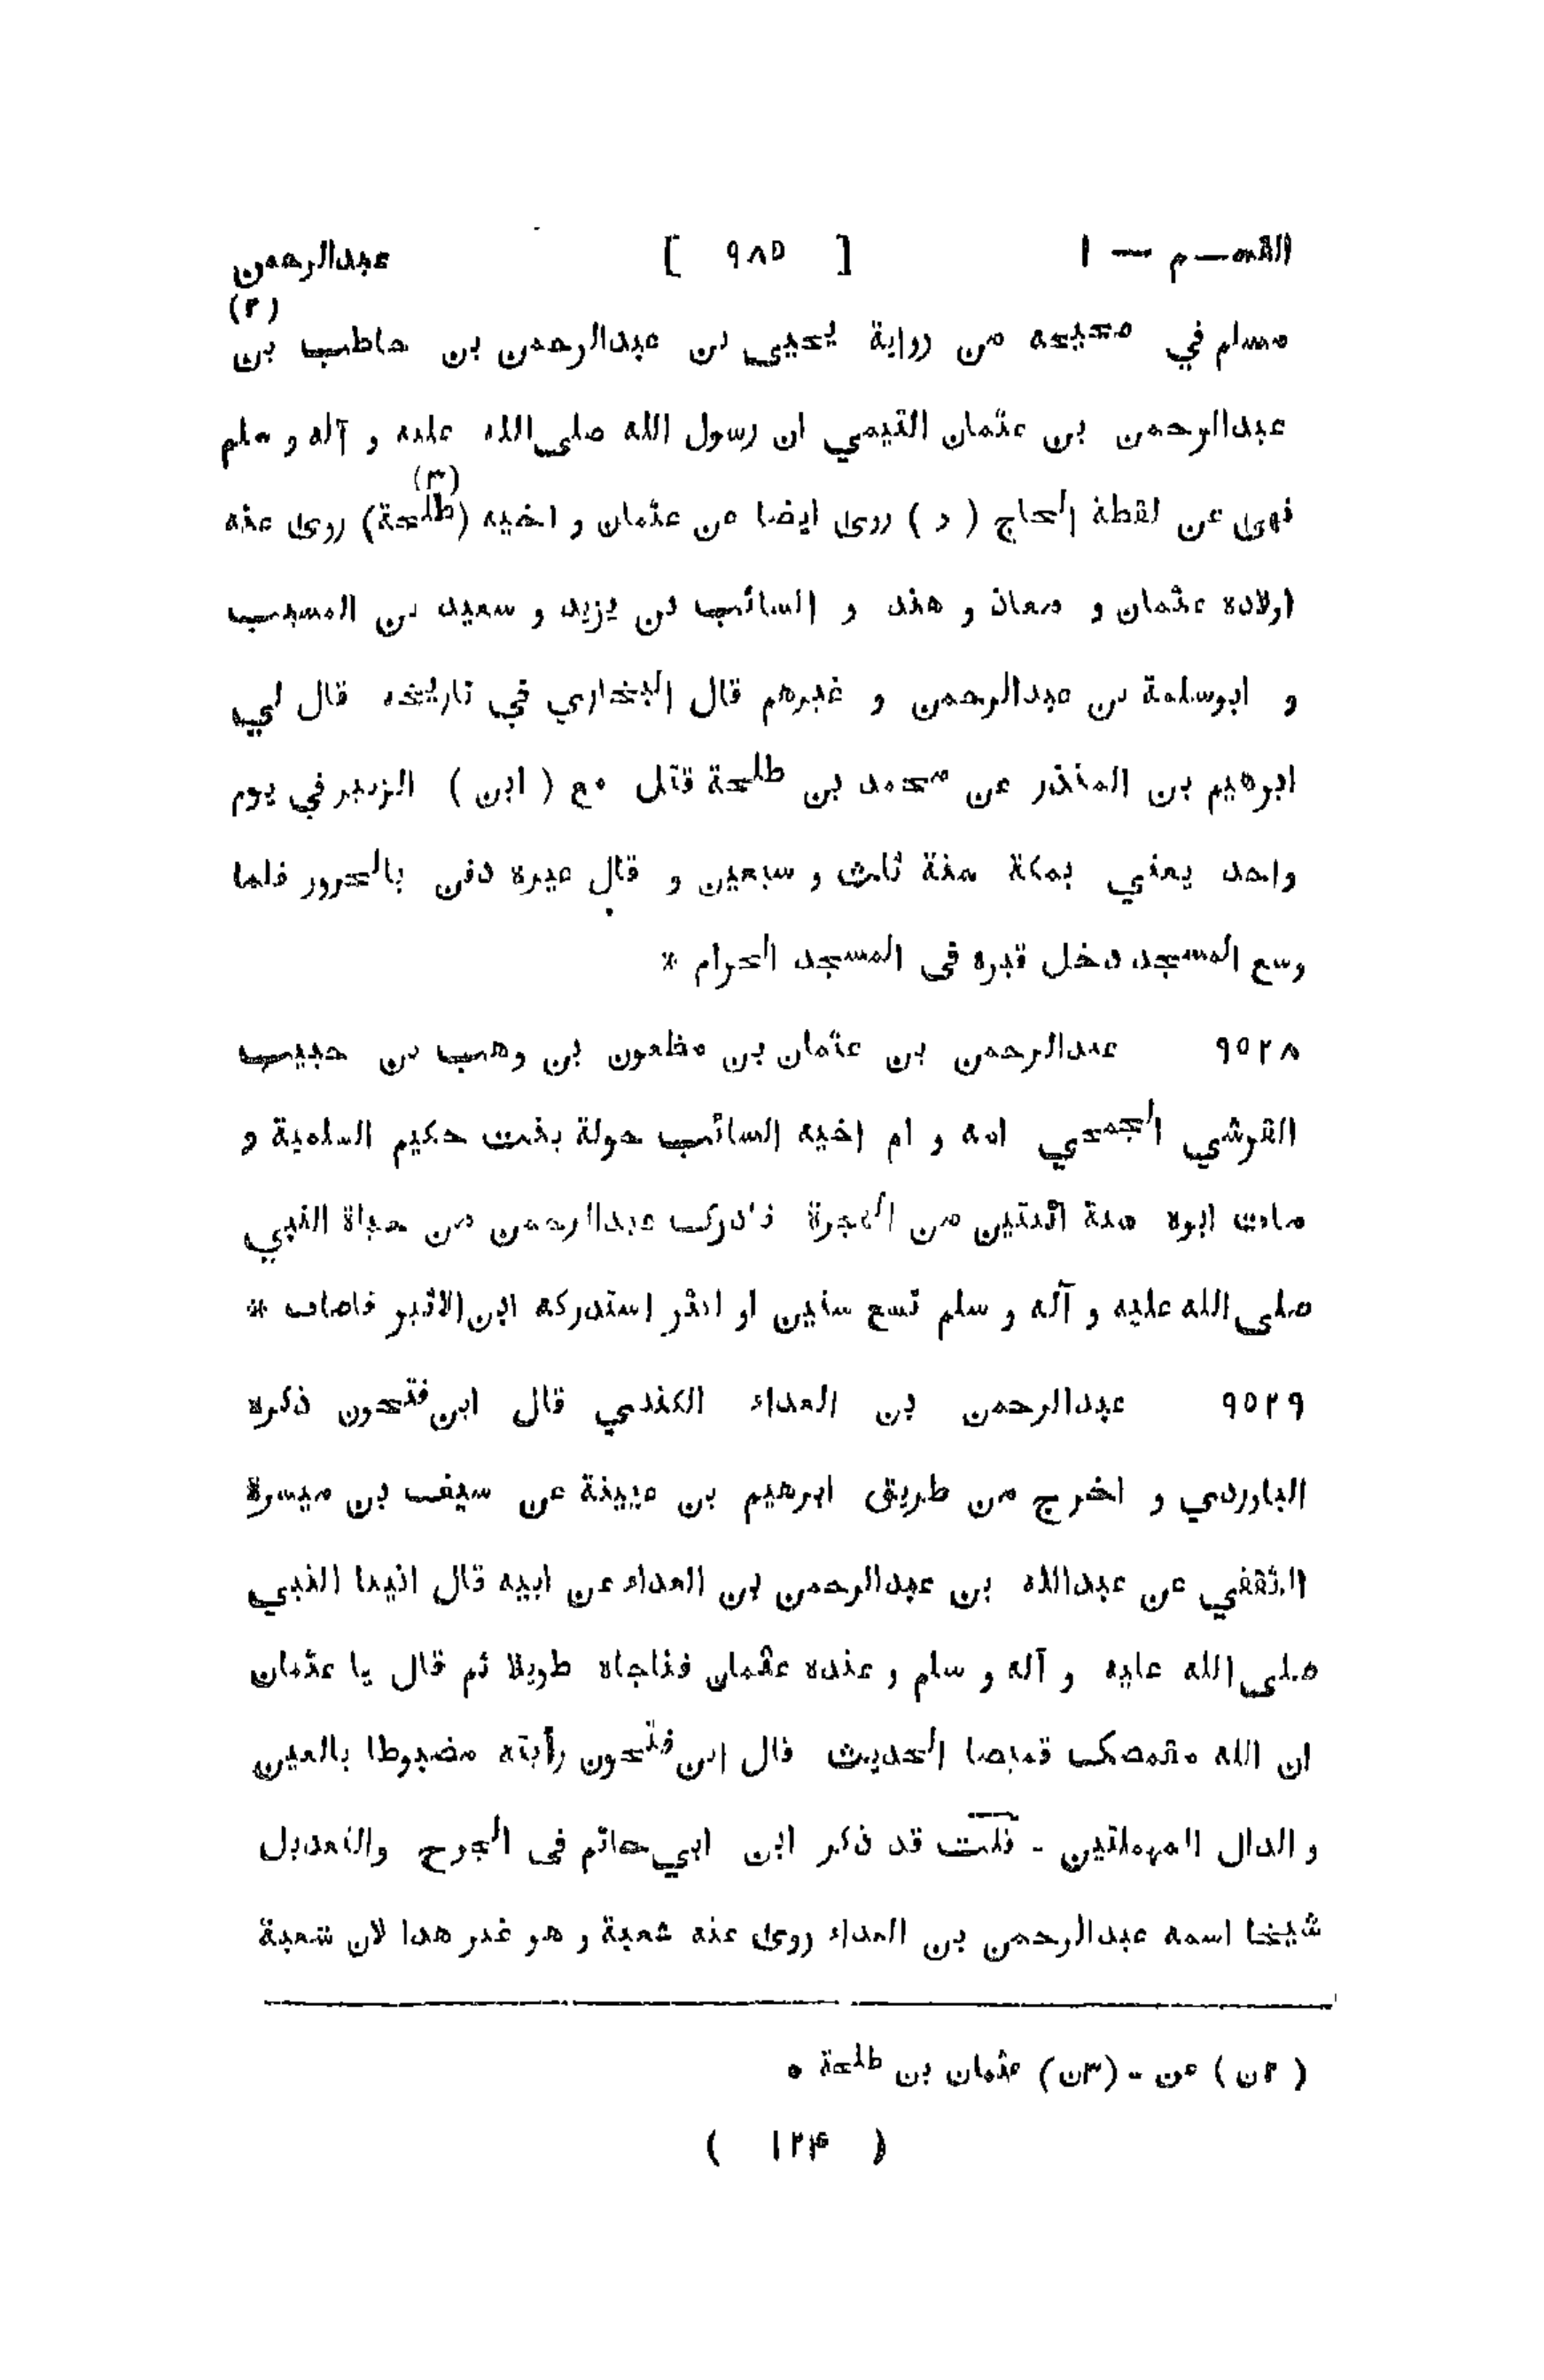 القسـم — ا [ ٩٨٥ ] عبدالرحمن
مسلم في صحيحه من رواية يحيى بن عبدالرحمن بن حاطب بن (٢)
عبدالرحمن بن عثمان التيمي ان رسول الله صلى الله عليه و آله و سلم
نهى عن لقطة الحاج ( د ) روى ايضا عن عثمان و اخيه (طلحة) (٣) روى عنه
اولاده عثمان و معاذ و هند و السائب بن يزيد و سعيد بن المسيب
و ابوسلمة بن عبدالرحمن و غيرهم قال البخاري في تاريخه قال لي
ابرهيم بن المنذر عن محمد بن طلحة قتل مع ( ابن ) الزبير في يوم
واحد يعني بمكة سنة ثلث و سبعين و قال غيره دفن بالحرور فلما
وسع المسجد دخل قبره فى المسجد الحرام *
٩٥٢٨ عبدالرحمن بن عثمان بن مظعون بن وهب بن حبيب
القرشي الجمحي امه و ام اخيه السائب خولة بنت حكيم السلمية و
مات ابوه سنة اثنتين من الهجرة فادرك عبدالرحمن من حياة النبي
صلى الله عليه و آله و سلم تسع سنين او اكثر استدركه ابن الاثير فاصاب *
٩٥٢٩ عبدالرحمن بن العداء الكندي قال ابن فتحون ذكره
الباوردي و اخرج من طريق ابرهيم بن عيينة عن سيف بن ميسرة
الثقفي عن عبدالله بن عبدالرحمن بن العداء عن ابيه قال اتينا النبي
صلى الله عليه و آله و سلم و عنده عثمان فناجاه طويلا ثم قال يا عثمان
ان الله مقمصك قميصا الحديث قال ابن فتحون رأيته مضبوطا بالعين
و الدال المهملتين - قلت قد ذكر ابن ابي حاتم فى الجرح والتعديل
شيخا اسمه عبدالرحمن بن العداء روى عنه شعبة و هو غير هذا لان شعبة
( ٢ن ) عن - (٣ن) عثمان بن طلحة •
( ١٢۴ )